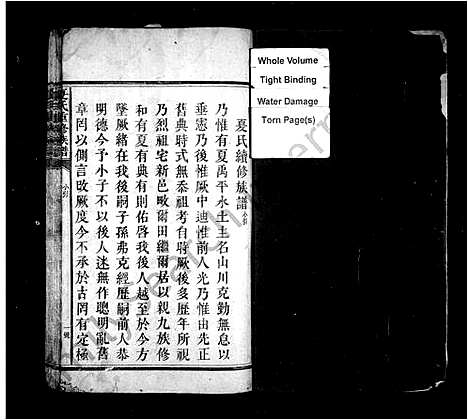 Whole Volume
Tight Binding
Water Damage
Torn Page(s)
夏氏續修族譜小引
乃惟有夏禹平水土主名山川克勤無息以
垂憲乃後惟厥中迪惟前人光乃惟由先正
舊典時式無忝祖考自時厥後多歷年所視
乃烈祖宅新邑畋爾田繼爾居以親九族修
和有夏有典有則佑啓我後人越至於今方
墜厥緒在我後嗣子孫弗克經歷嗣前人恭
明德今予小子不以後人迷無作聰明亂舊
章罔以側言改厥度今不承於古罔有定極
小引